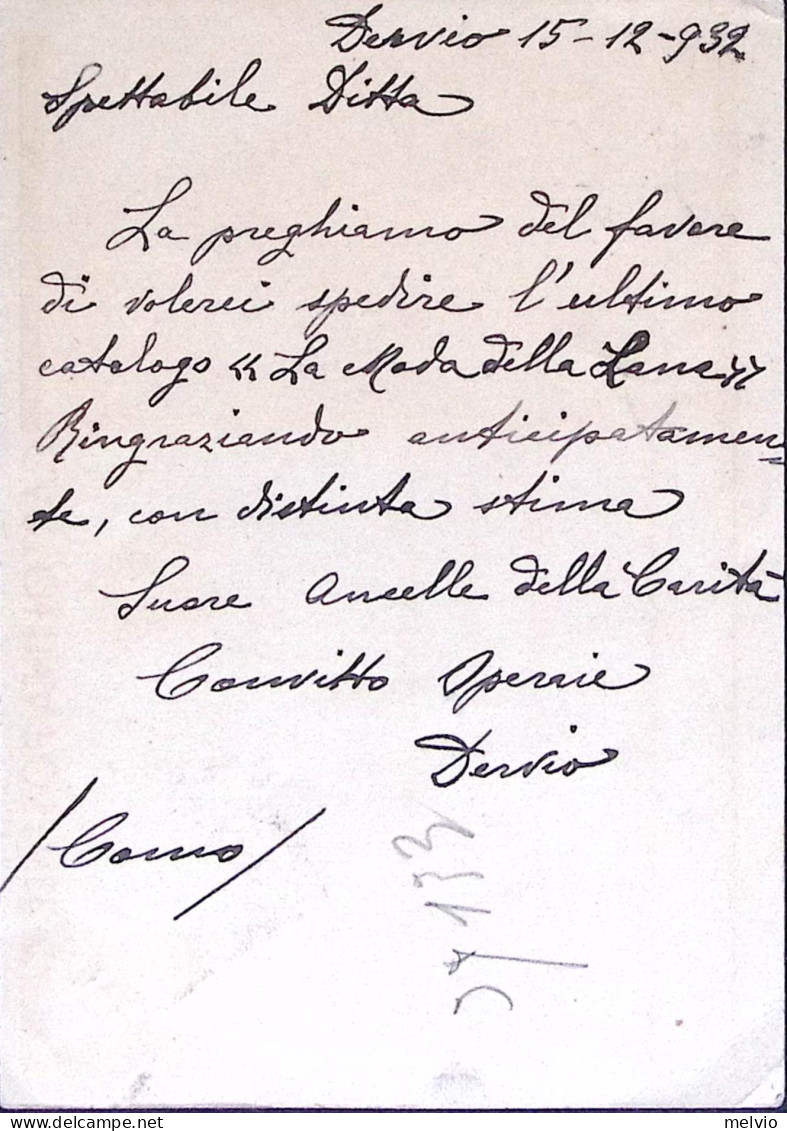 Dervio 15-12-932
Spettabile Ditta
La preghiamo del favore
di volerci spedire l'ultimo
catalogo « La Moda della Lana »
Ringraziando anticipatamen-
te, con distinta stima
Suore Ancelle della Carità
Convitto Operaie
Dervio
/Como/
delcampe.net
melvio